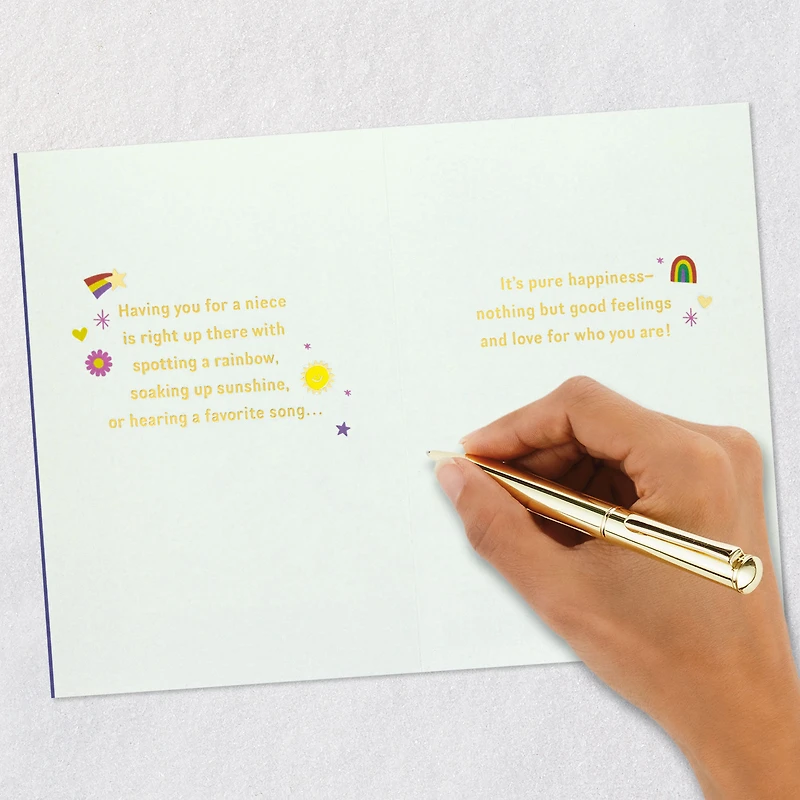 Having you for a niece
is right up there with
spotting a rainbow,
soaking up sunshine,
or hearing a favorite song...
It's pure happiness–
nothing but good feelings
and love for who you are!